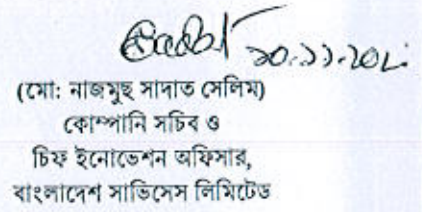 (মো: নাজমুছ সাদাত সেলিম)
কোম্পানি সচিব ও
চিফ ইনোভেশন অফিসার,
বাংলাদেশ সার্ভিসেস লিমিটেড